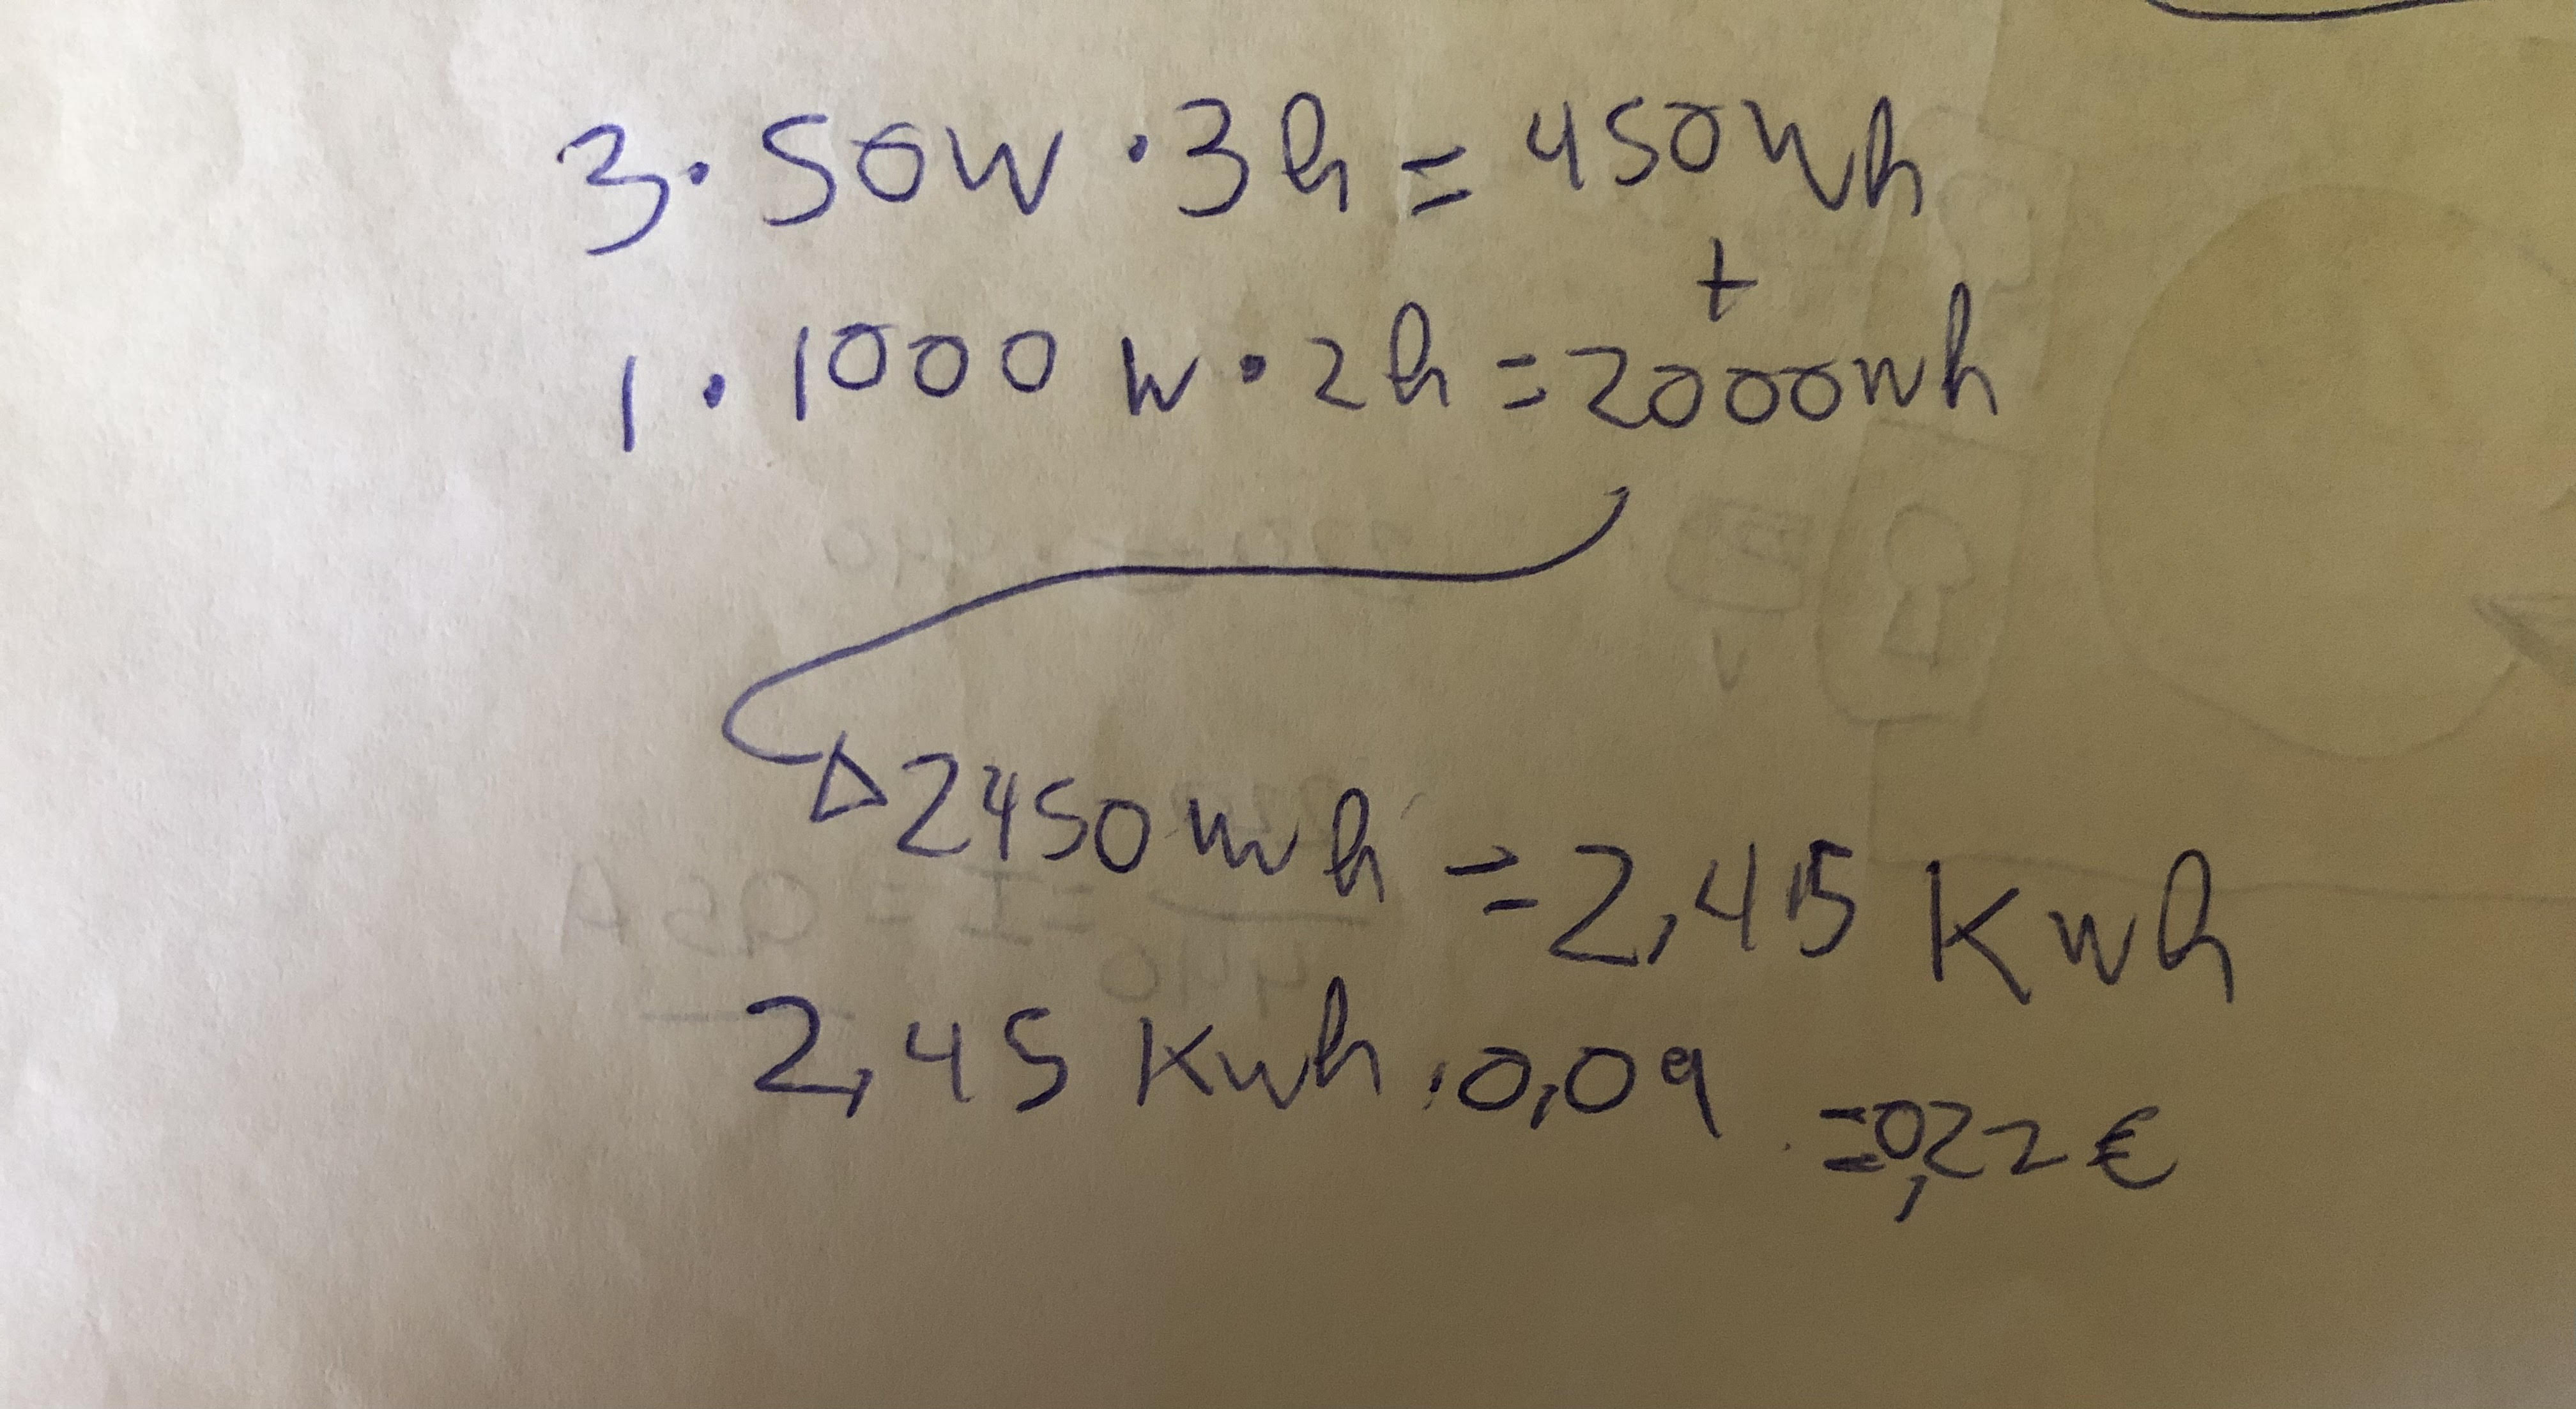 3 · 50W · 3h = 450Wh
+
1 · 1000 W · 2h = 2000Wh
2450Wh = 2,45 Kwh
2,45 Kwh · 0,09 = 0,22 €